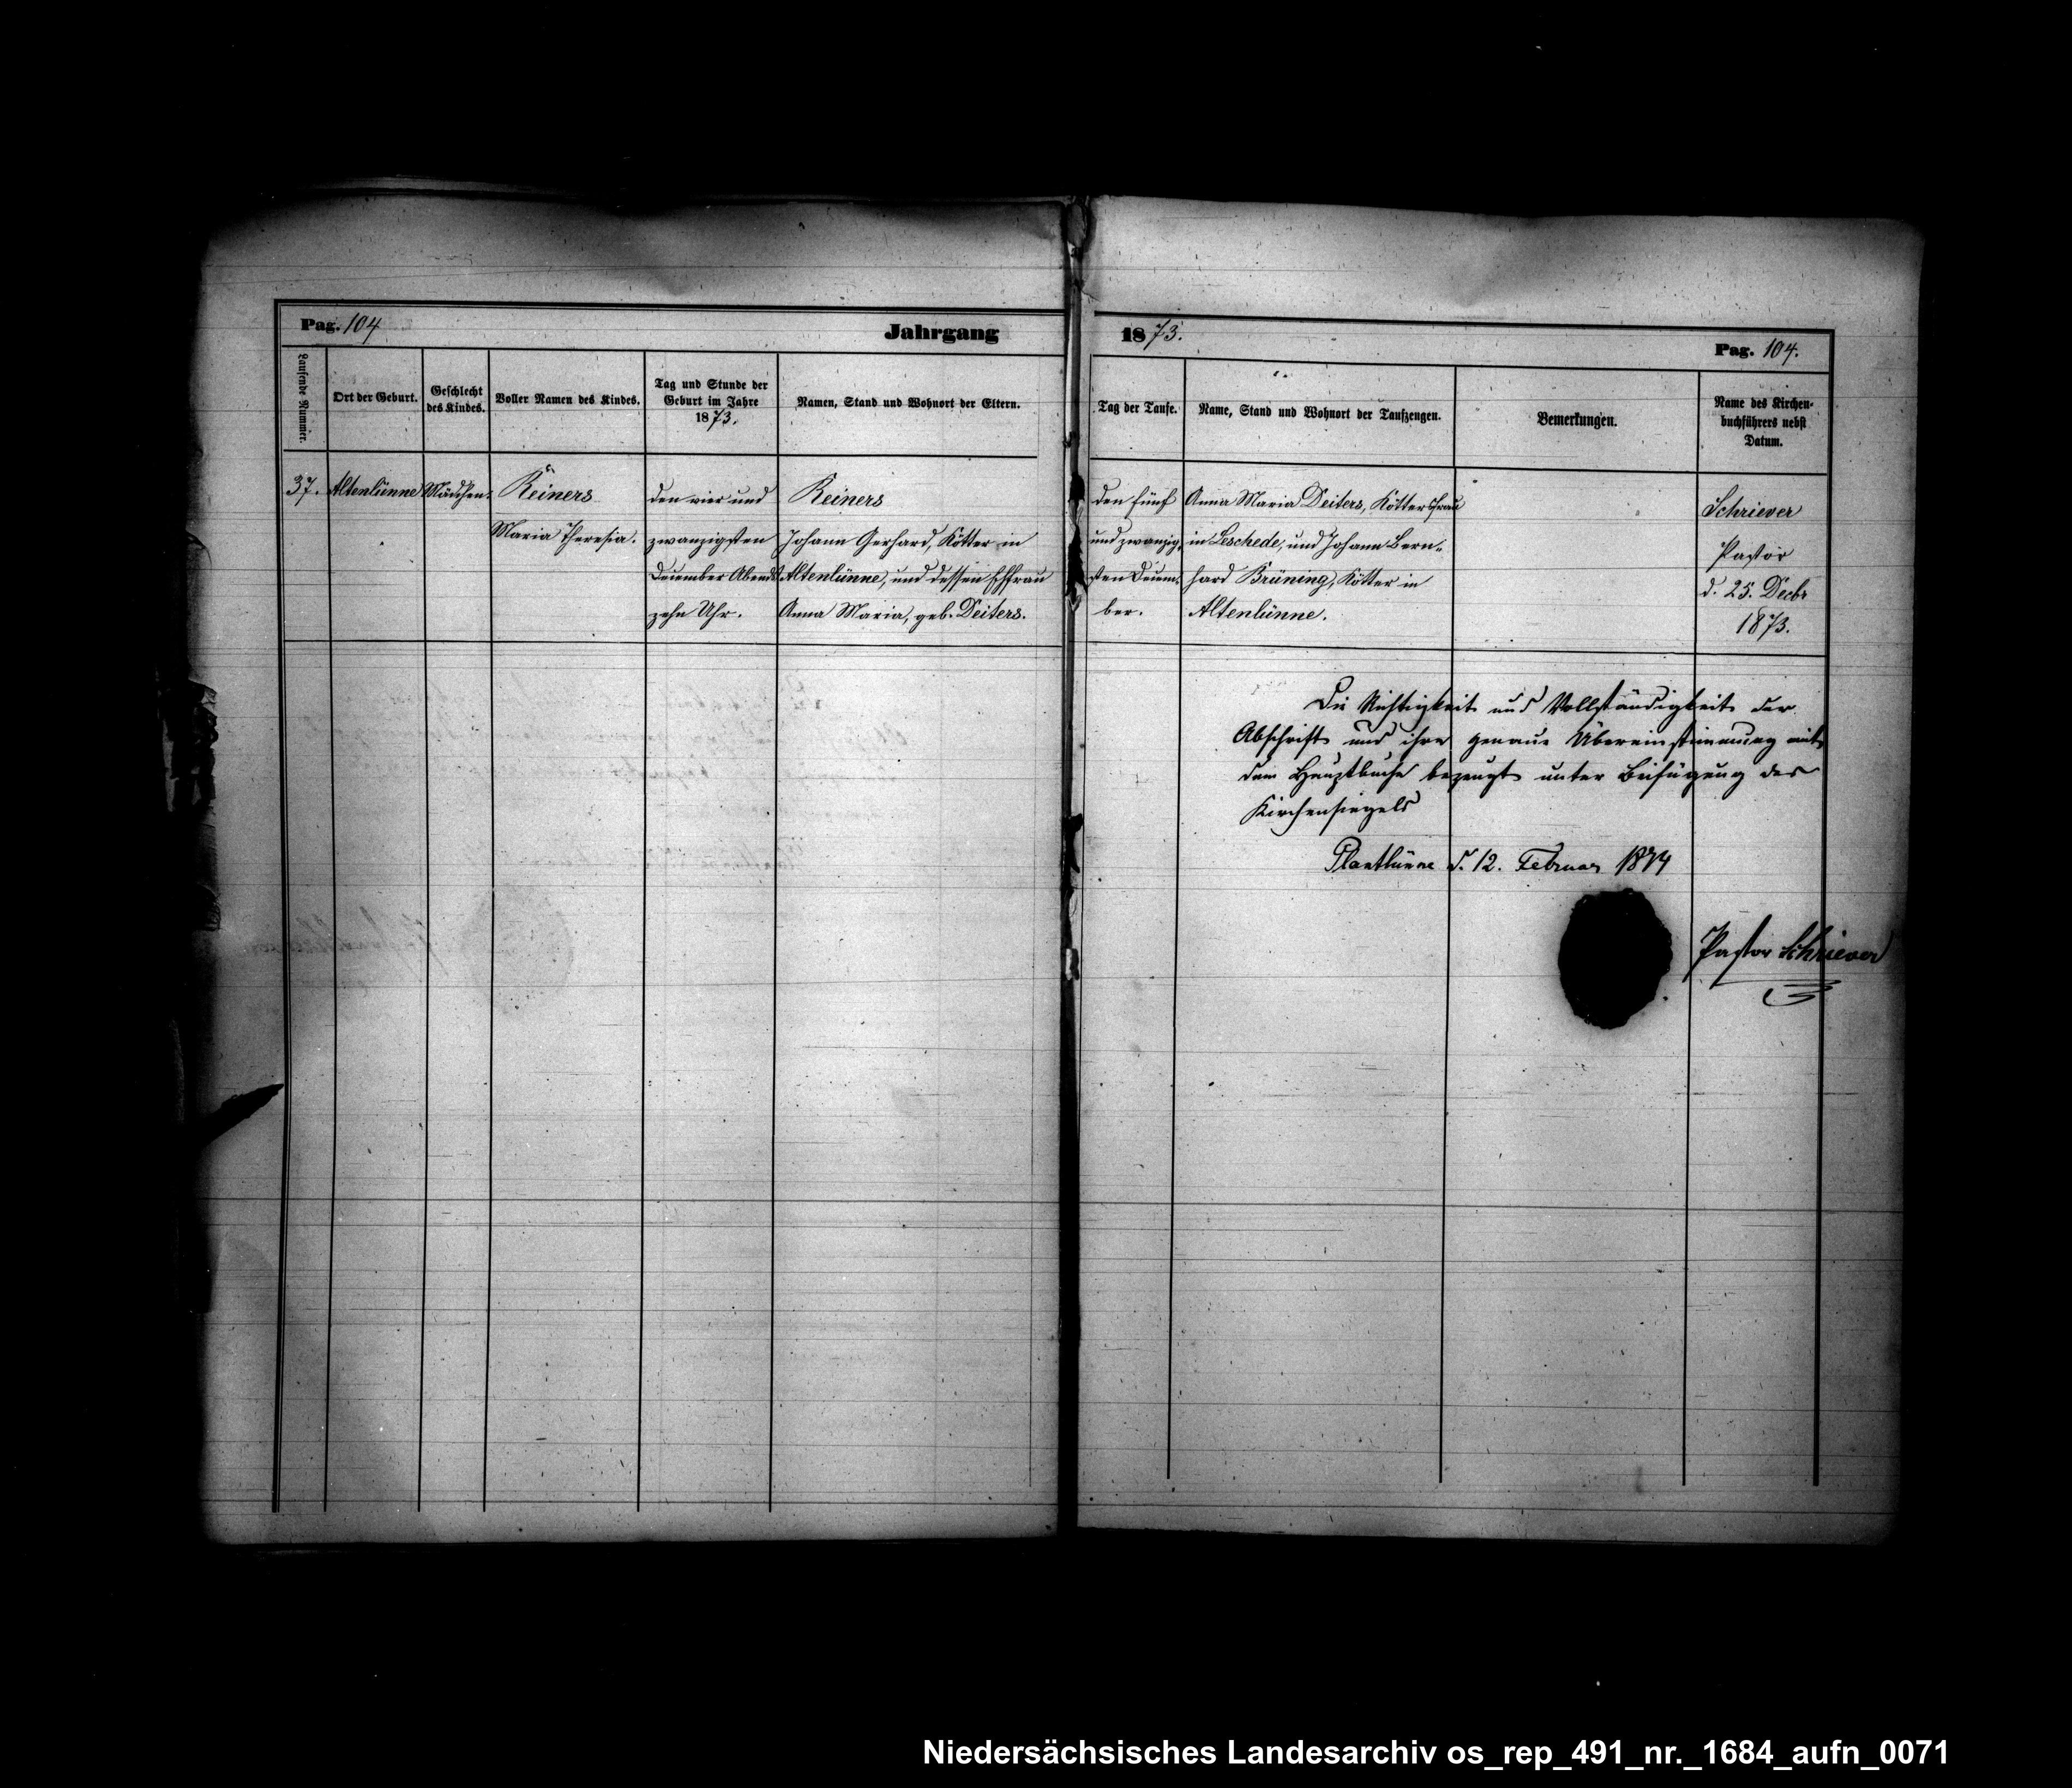 Pag. 104
Jahrgang
1873.
Pag. 104.
Laufende Nummer.
Ort der Geburt.
Geschlecht
des Kindes.
Voller Namen des Kindes.
Tag und Stunde der
Geburt im Jahre
1873.
Namen, Stand und Wohnort der Eltern.
Tag der Taufe.
Name, Stand und Wohnort der Taufzeugen.
Bemerkungen.
Name des Kirchen-
buchführers nebst
Datum.
37.
Altenlünne
Mädchen.
Reiners
Maria Theresia.
den vier und
zwanzigsten
December Abends
zehn Uhr.
Reiners
Johann Gerhard, Kötter in
Altenlünne, und dessen Ehfrau
Anna Maria, geb. Deiters.
den fünf
und zwanzig-
sten Decem-
ber.
Anna Maria Deiters, Köttersfrau
in Leschede, und Johann Bern-
hard Brüning, Kötter in
Altenlünne.
Schriever
Pastor
d. 25. Decbr
1873.
Die Richtigkeit und Vollständigkeit der
Abschrift und ihre genaue Übereinstimmung mit
dem Hauptbuche bezeugt unter Beifügung des
Kirchensiegels
Plantlünne d. 12. Februar 1874
Pastor Schriever
Niedersächsisches Landesarchiv os_rep_491_nr._1684_aufn_0071